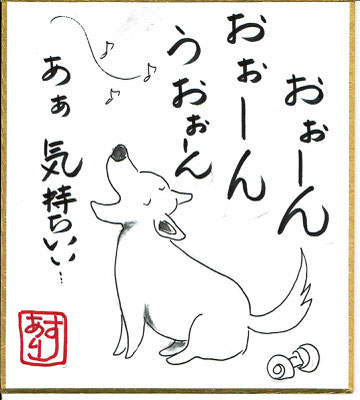 おぉーん
おぉーん
うおぉーん
あぁ 気持ちいい…
あすり